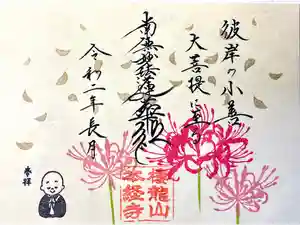 彼岸の小善
大菩提に至る
南無妙法蓮華経
令和二年長月
奉拝
龍山
本経寺